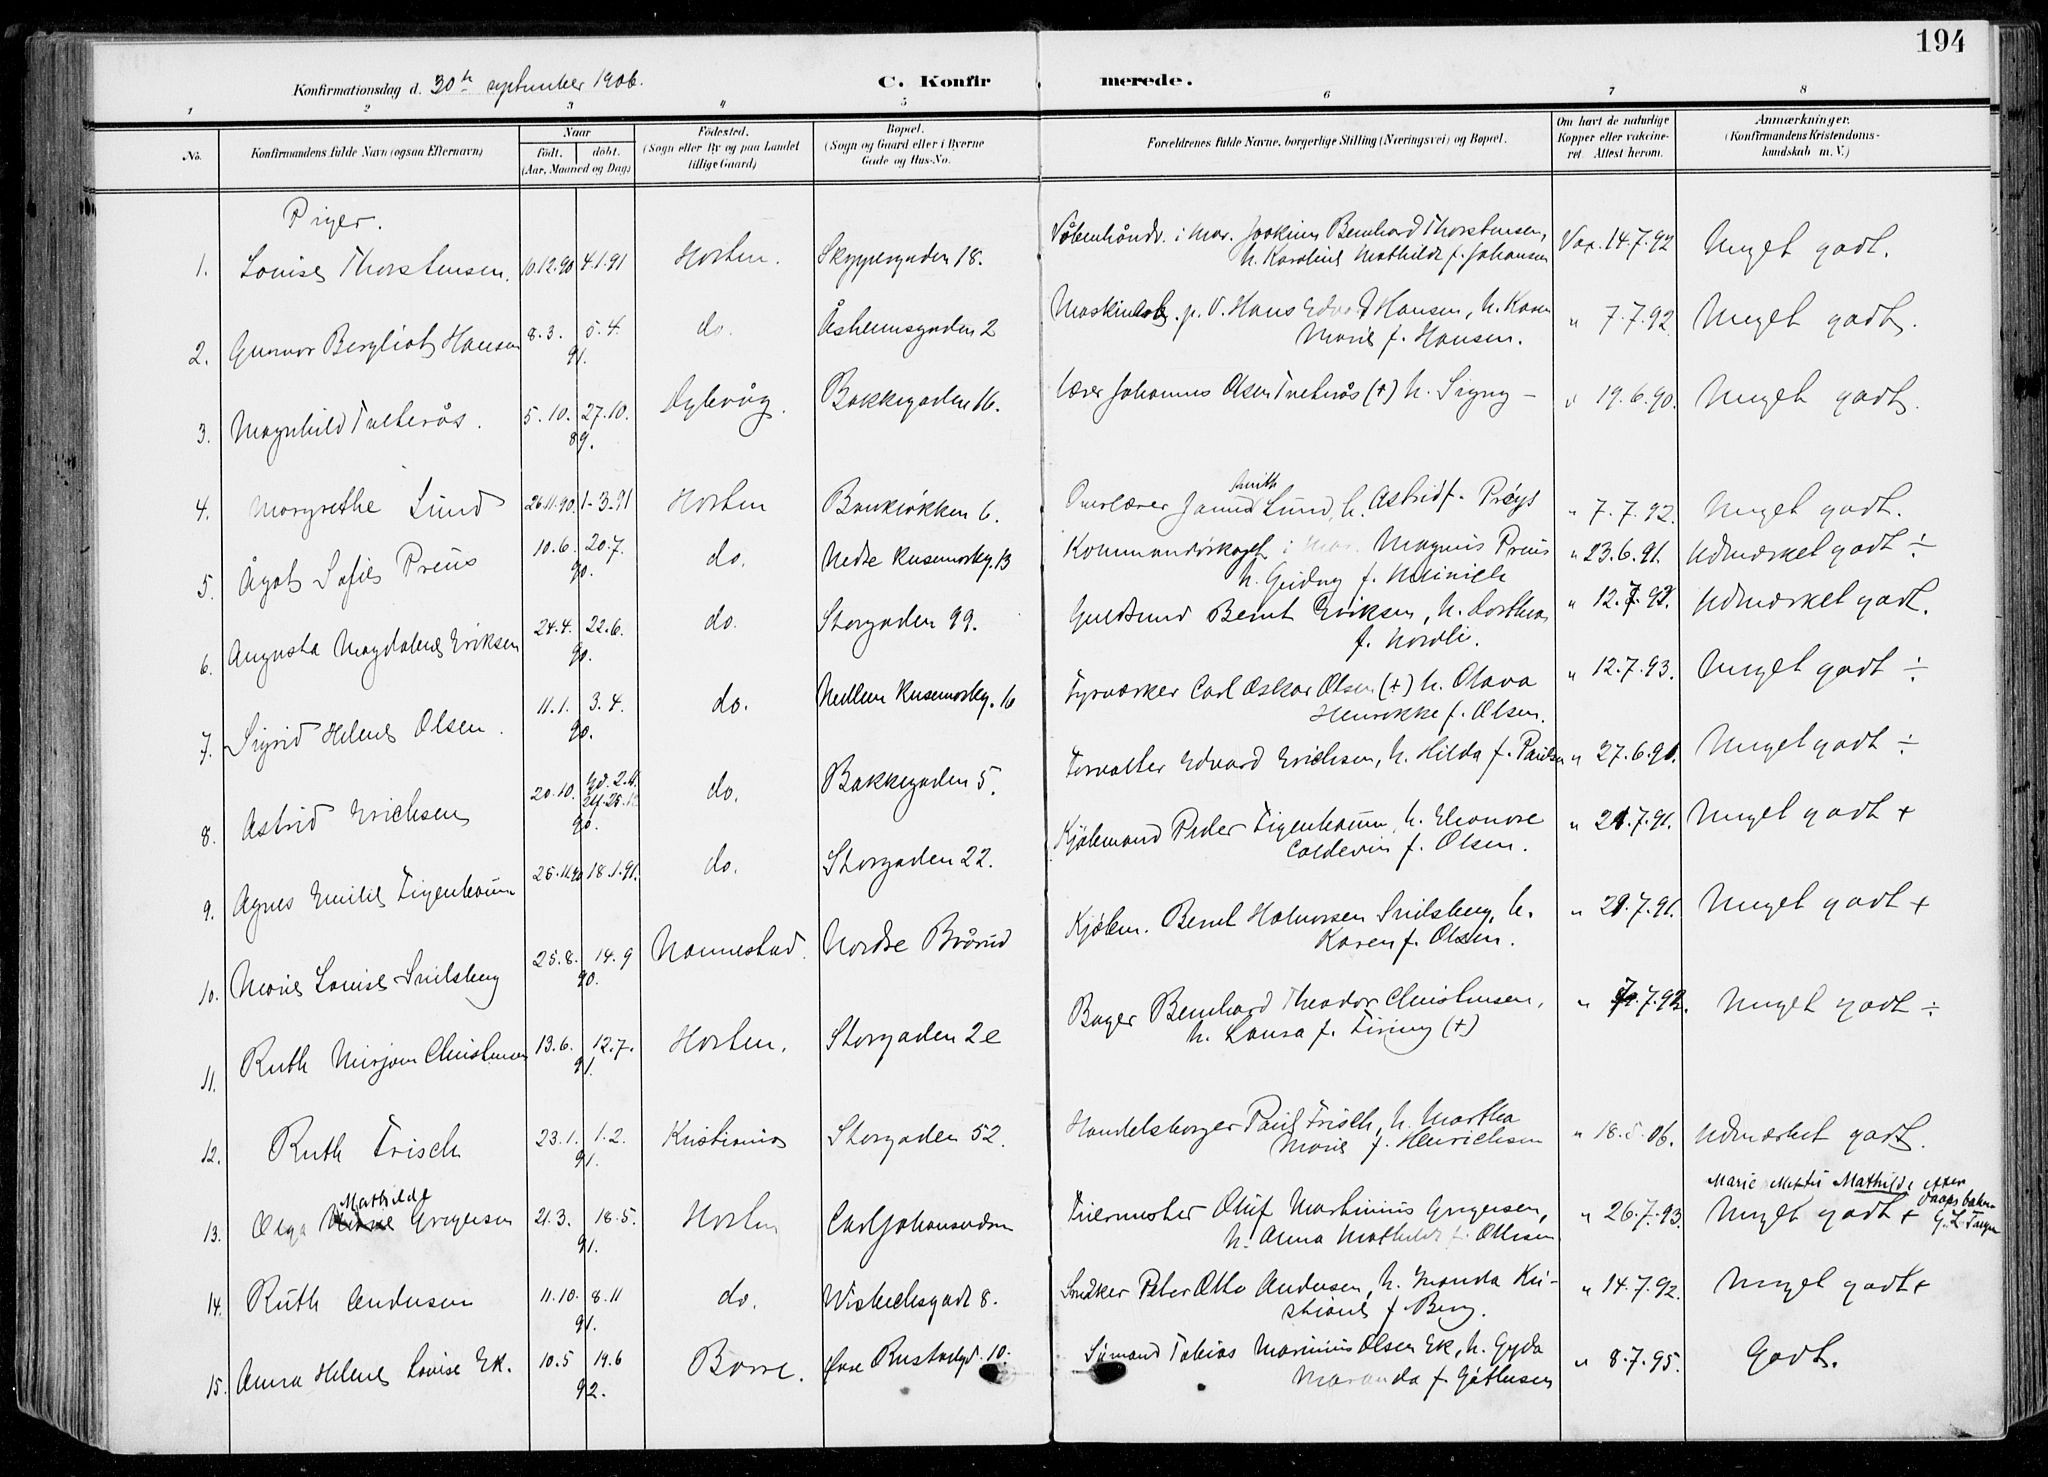 194
Konfirmationsdag d. 30th september 1906. C. Konfirmerede.
1 2 3 4 5 6 7 8
No. Konfirmandens fulde Navn (ogsaa Efternavn) Naar födt. döbt. (Aar, Maaned og Dag) Födested. (Sogn eller By og paa Landet tillige Gaard) Bopæl. (Sogn og Gaard eller i Byerne Gade og Hus-No. Forældrenes fulde Navne, borgerlige Stilling (Næringsvei) og Bopæl. Om havt de naturlige Kopper eller vakcineret. Attest herom. Anmærkninger. (Konfirmandens Kristendomskundskab m. V.)
Piger.
1. Louise Thorstensen. 10.12.90 4.1.91 Horten. Skippergaden 18. i Mar. Joakim Bernhard Thorstensen, h. Karoline Mathilde f. Johansen Vax. 14.7.92 Meget godt.
2. Gunvor Bergliot Hansen 8.3. 5.4. 91. do. Åsheimsgaden 2 p. V. Hans Edvard Hansen, h. Karen Marie f. Hansen. " 7.7.92 Meget godt.
3. Magnhild Tveterås. 5.10. 27.10. 89. Dybvåg. Bakkegaden 16. Lærer Johannes Olsen Tveterås (+) h. Signy – " 19.6.90. Meget godt.
4. Margrethe Lund 26.11.90. 1-3.91 Horten Bankløkken 6. Overlærer Smith Lund, h. Astrid f. Prøys " 7.7.92. Meget godt.
5. Ågot Sofie Preus 10.6. 20.7. 90. do. Nedre Kusemosbg. 13 i Mar. Magnus Preus h. Gudny f. Meinich " 23.6.91. Udmærket godt ÷
6. Augusta Magdalene Eriksen 24.4. 22.6. 90. do. Storgaden 99. Guldsmed Bernt Eriksen, h. Dorthea f. Nordli. " 12.7.92. Udmærket godt.
7. Sigrid Helene Olsen. 11.1. 3.4. 90. do. Mellem Kusemosbg. 16 Fyrværker Carl Oskar Olsen (+) h. Olava Henrikke f. Olsen. " 12.7.93. Meget godt ÷
8. Astrid Erichsen 20.10. 90. do. Bakkegaden 5. Forvalter Edvard Erichsen, h. Hilda f. Paulsen " 27.6.91. Meget godt ÷
9. Agnes Emilie Figenbaum 25.11.90 18.1.91. do. Storgaden 22. Kjøbmand Peder Figenbaum, h. Eleonore Coldevin f. Olsen. " 21.7.91. Meget godt +
10. Marie Louise Smilsberg 25.8. 14.9 90. Nannestad. Nordre Brårud Kjøbm. Bernt Halvorsen Smilsberg, h. Karen f. Olsen. " 21.7.91. Meget godt +
11. Ruth Mirjam Christensen 13.6. 12.7. 91. Horten. Storgaden 2e Bager Bernhard Theodor Christensen, h. Laura f. Firing (+) " 7.92. Meget godt ÷
12. Ruth Frisch 23.1. 1.2. 91. Kristiania Storgaden 52. Handelsborger Paul Frisch, h. Martha Marie f. Henrichsen " 18.5.06. Udmærket godt.
13. Olga Mathilde Gregersen 21.3. 18.5. 91. Horten Carljohansværn Olüf Martinius Gregersen, h. Anna Mathilde f. Ottesen " 26.7.93. Meget godt +
Marie Mathilde efter daabs
14. Ruth Andersen 11.10. 8.11 91. do. Wistechsgade 8. Snedker Peter Otto Andersen, h. Manda Kristiane f. Berg. " 14.7.92. Meget godt +
15. Anna Helene Lovise Ek. 10.5 19.6 92. Borre. Øvre Rustadgd. 10. Sømand Tobias Marinius Olsen Ek, h. Gyda Maranda f. Gøthesen " 8.7.95. Godt.